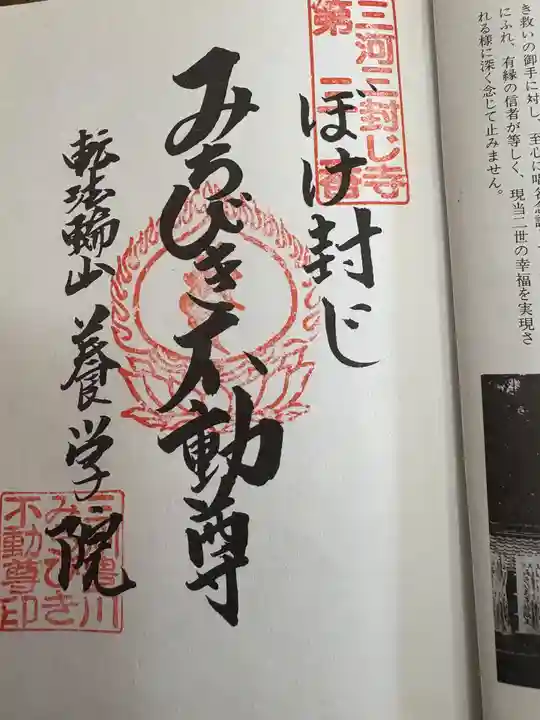 き救いの御手に対し、至心に唱名念誦、
にふれ、有縁の信者が等しく、現当二世の幸福を実現さ
れる様に深く念じて止みません。
三河三封じ寺
第二番
ぼけ封じ
みちびき不動尊
転法輪山 養学院
三河豊川
みちびき
不動尊印